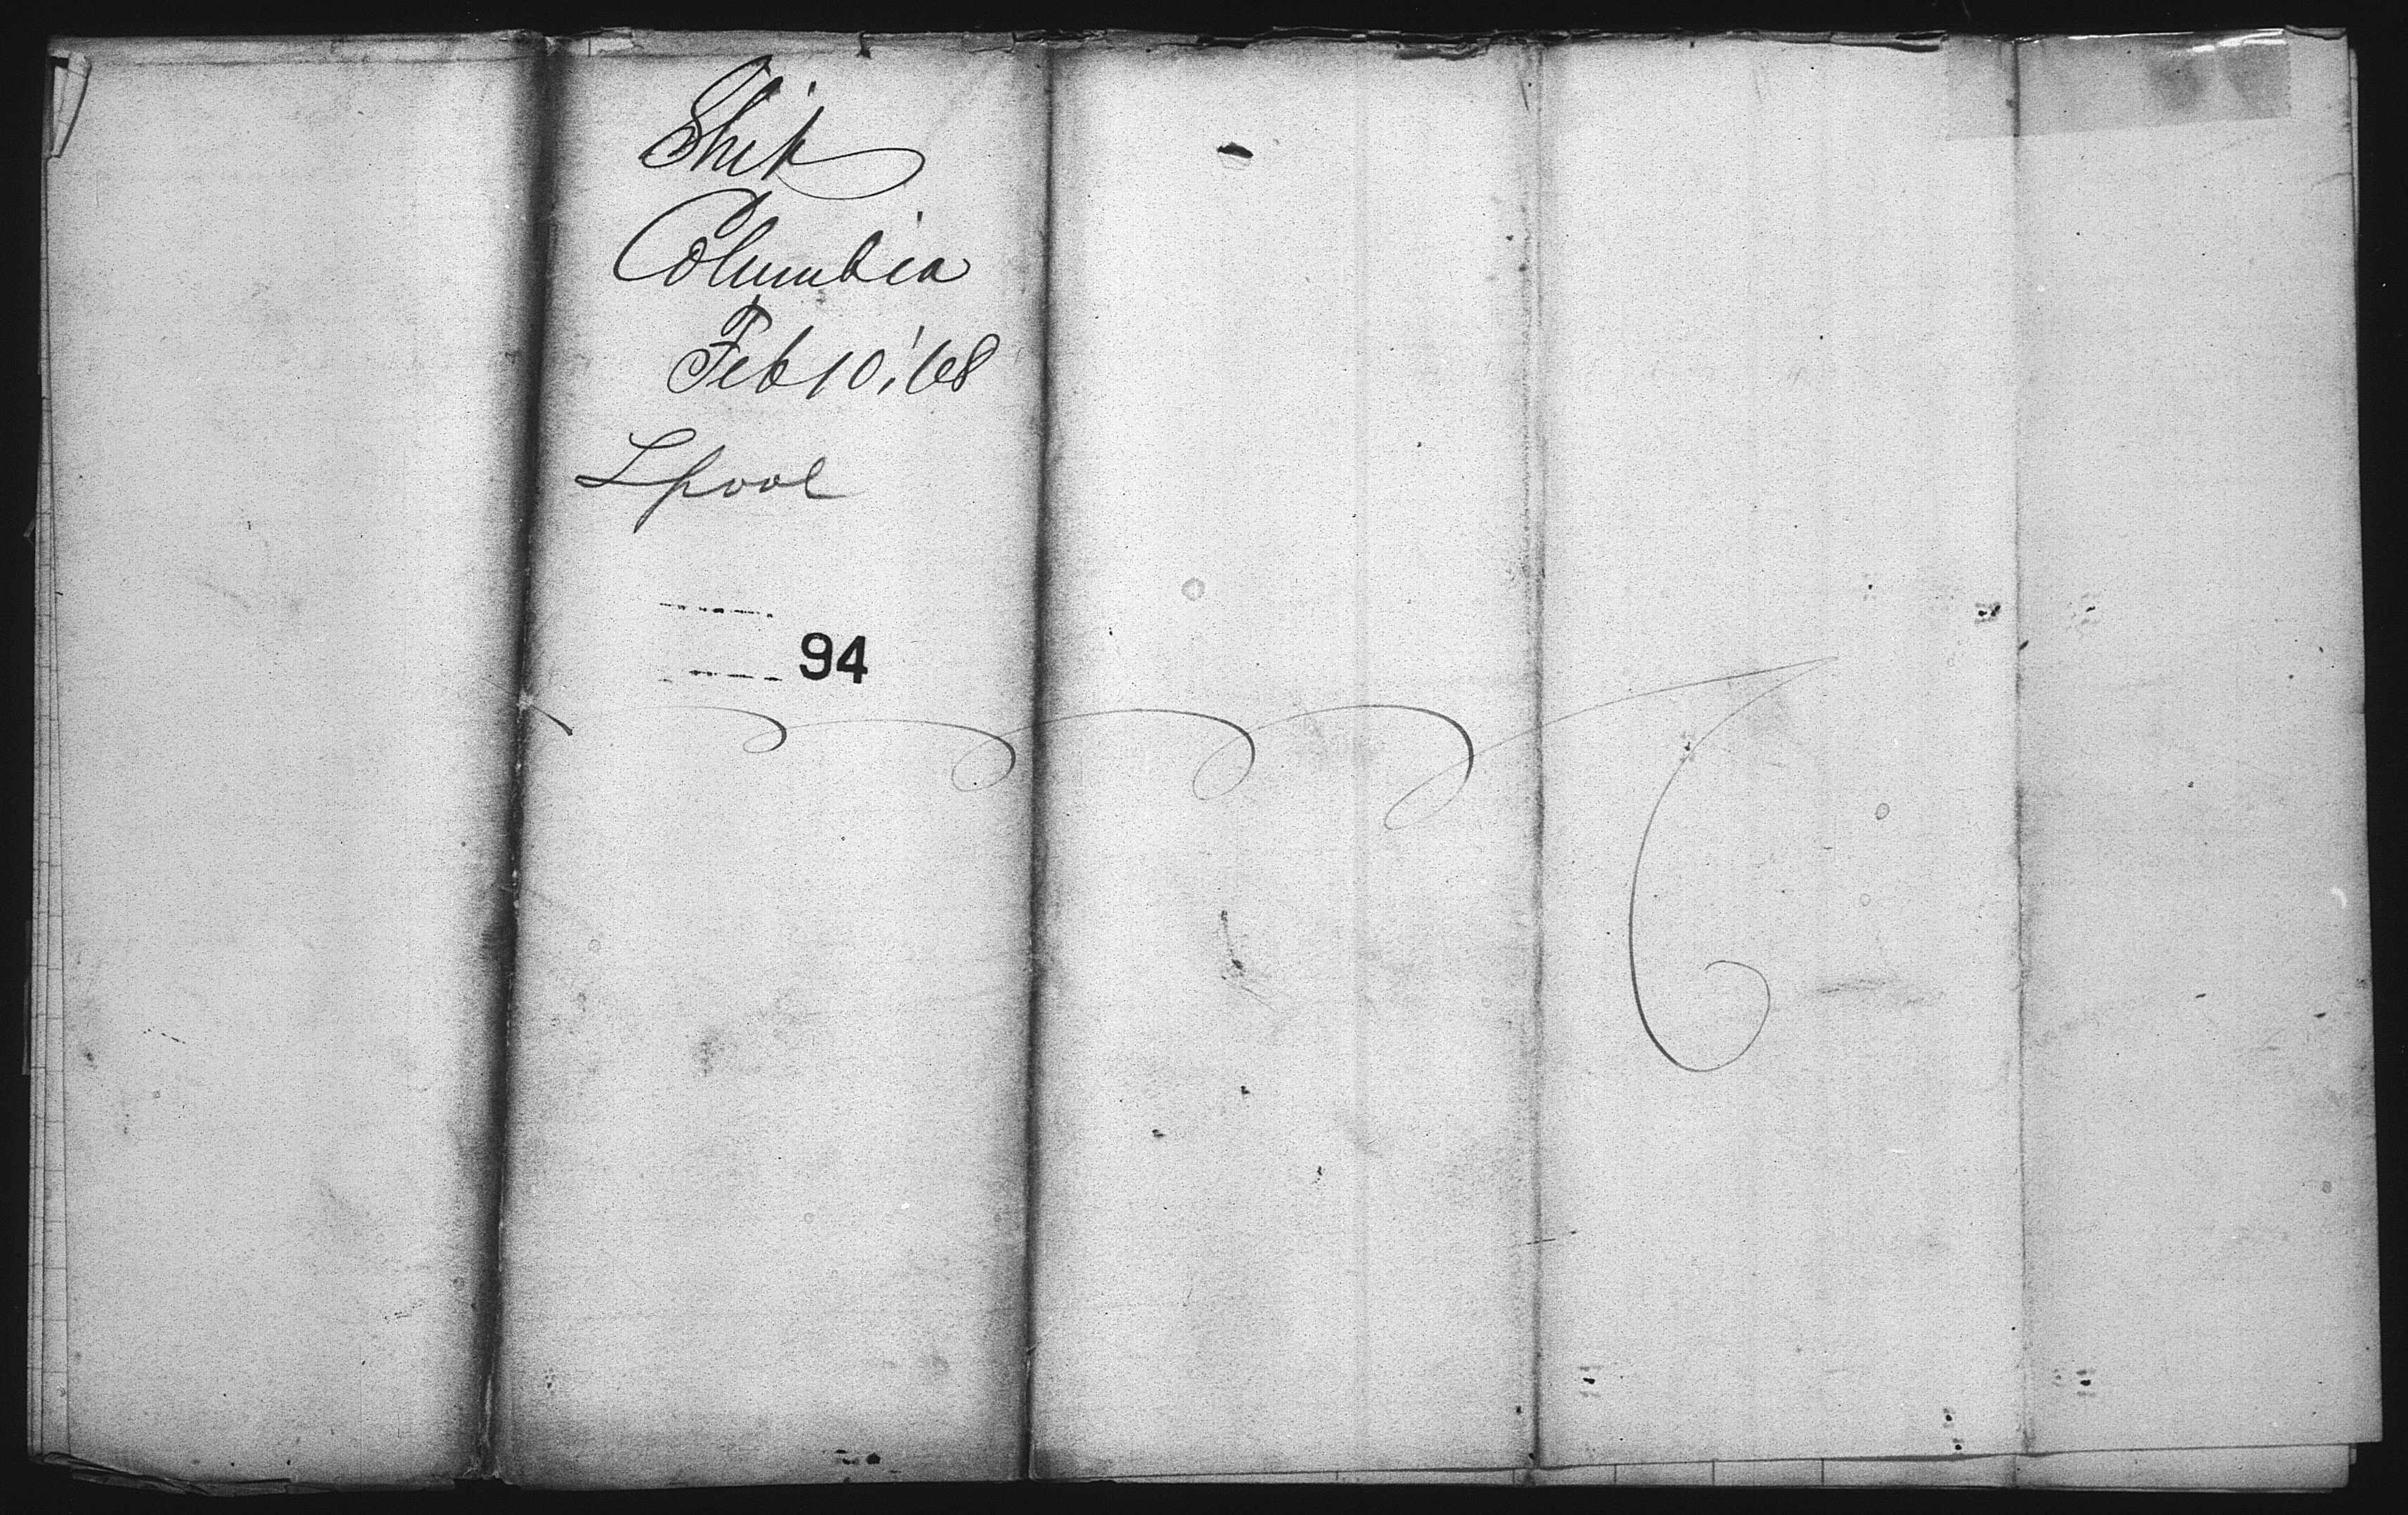 Ship
Columbia
Feb 10, '68
Lpool
94